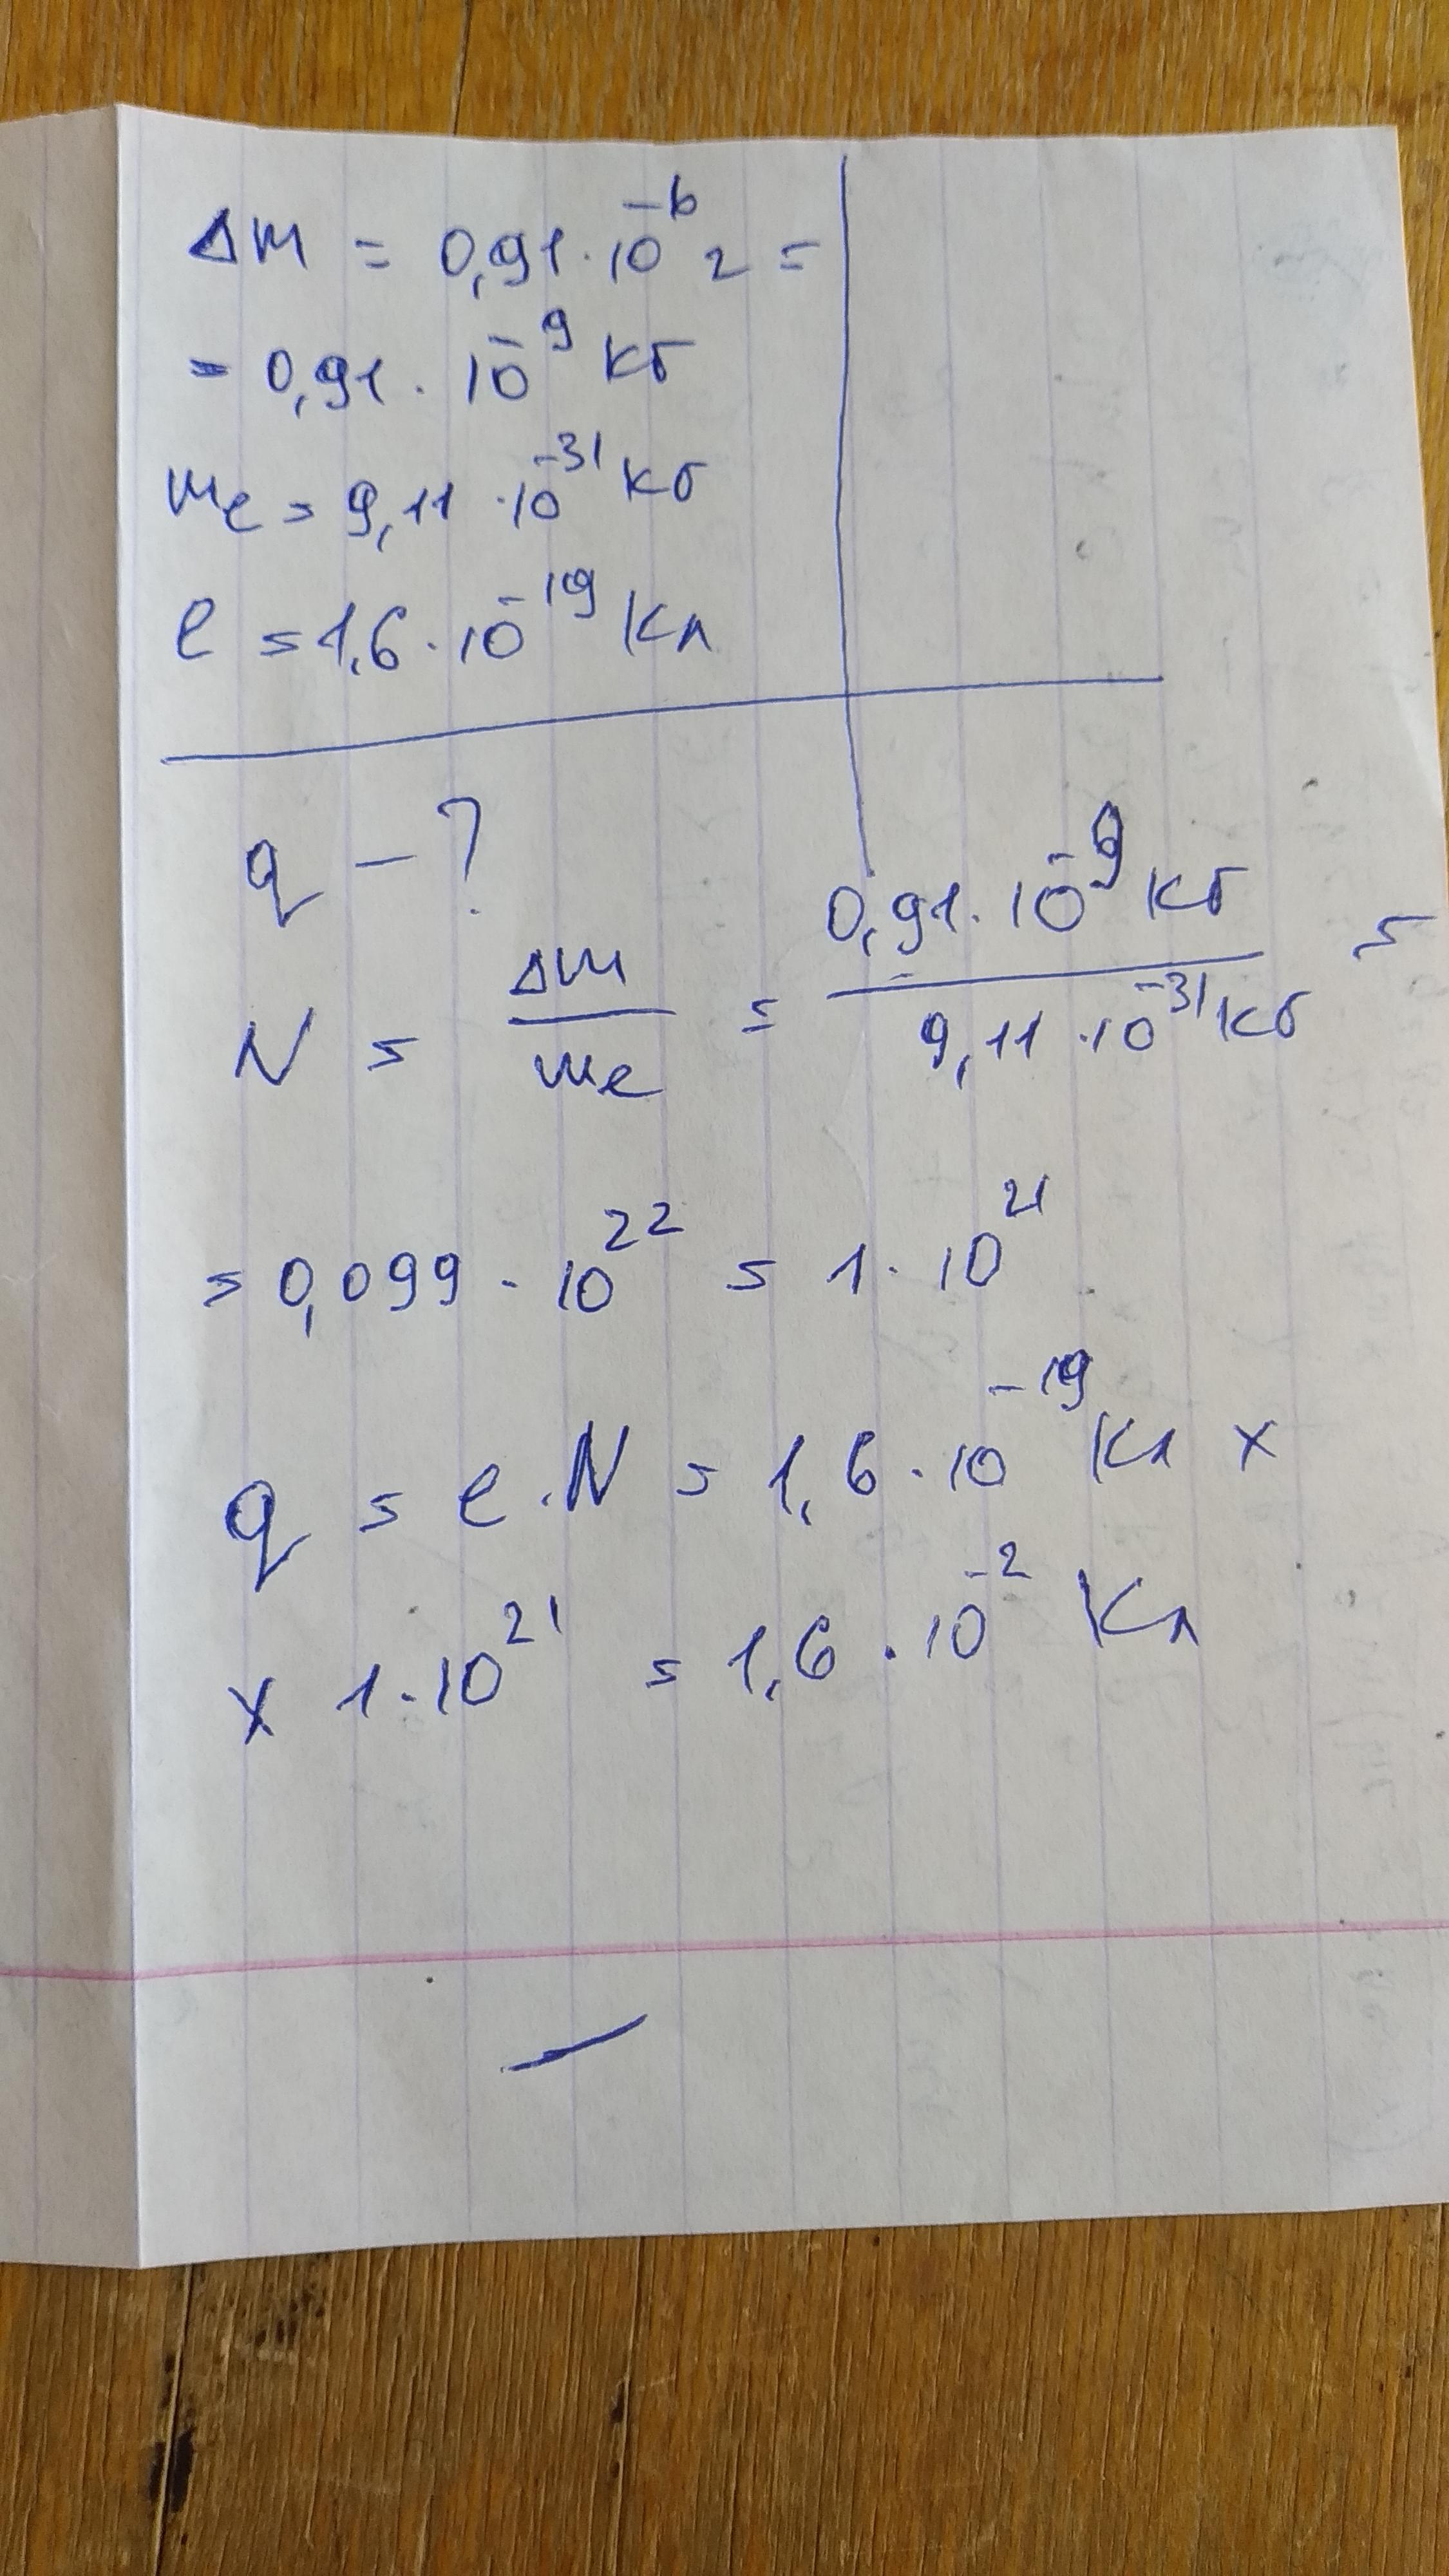 Δm = 0,91·10⁻⁶ г =
= 0,91·10⁻⁹ кг
mₑ = 9,11·10⁻³¹ кг
e = 1,6·10⁻¹⁹ Кл
q – ?
N = Δm/mₑ = 0,91·10⁻⁹ кг / 9,11·10⁻³¹ кг =
= 0,099·10²² = 1·10²¹
q = e·N = 1,6·10⁻¹⁹ Кл ×
× 1·10²¹ = 1,6·10⁻² Кл